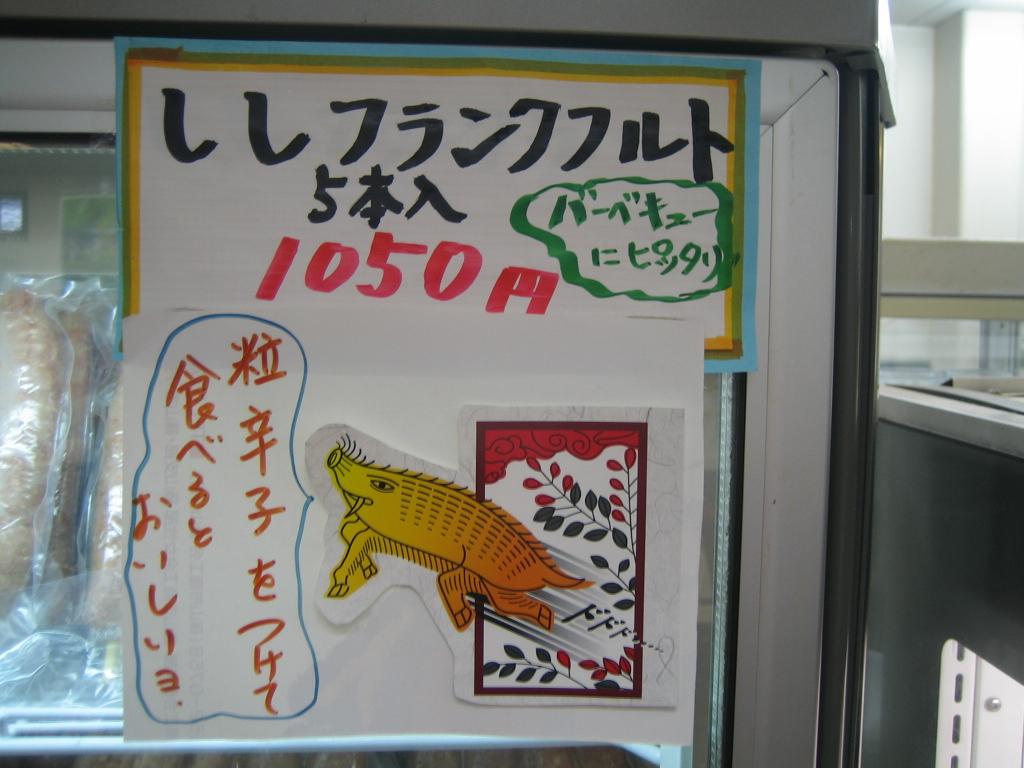 ししフランクフルト
5本入
1050円
バーベキュー
にピッタリ
粒辛子をつけて
食べると
おいしいヨ.
ドドドド